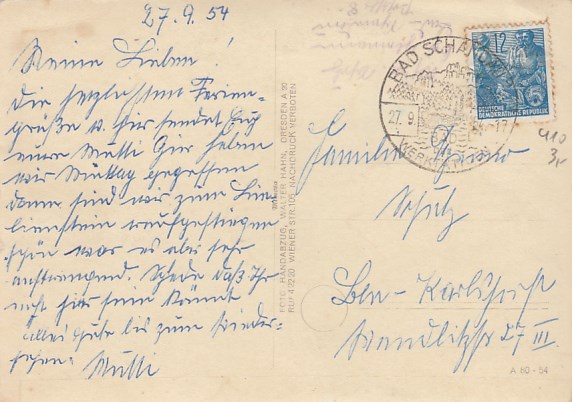 27.9.54
Meine Lieben!
Die herzlichsten Ferien-
grüße v. hier sendet Euch
eure Mutti Hier haben
wir Mittag gegessen
dann sind wir zum Lili-
enstein raufgestiegen
schön war es aber sehr
anstrengend. Schade daß Ihr
nicht hier sein könnt
alles Gute bis zum Wieder-
sehen:
Mutti
FOTO HANDABZUG, WALTER HAHN, DRESDEN A 50
RUF 42220 WIENER STR. 105 NACHDRUCK VERBOTEN
BAD SCHANDAU
27.9.
12
DEUTSCHE
DEMOKRATISCHE REPUBLIK
5
Familie
Schulz
Bln-Karlshorst
Wandlitzstr 27 III.
A 60 - 54